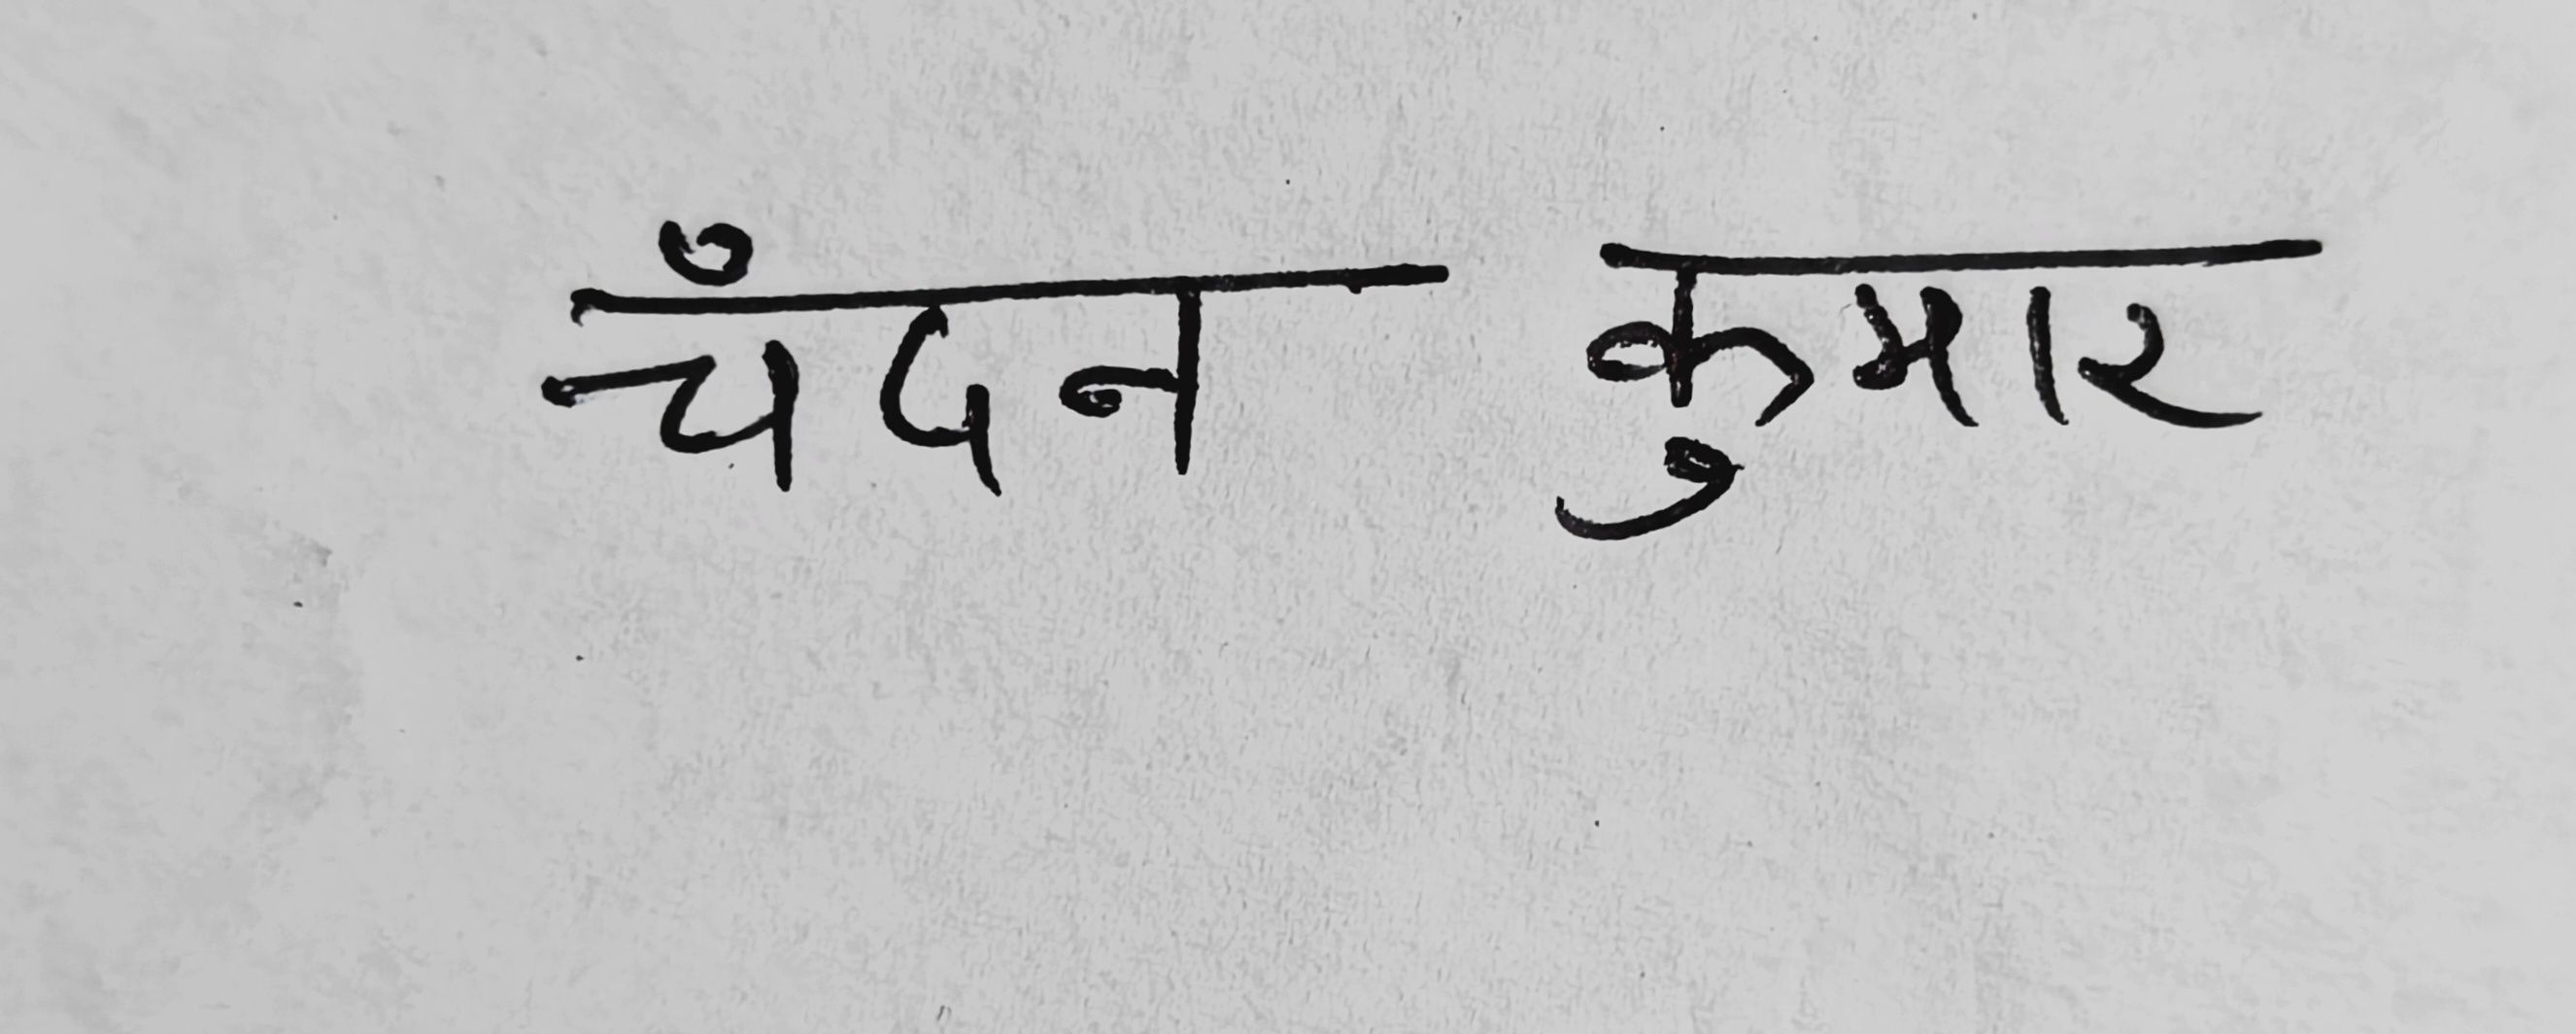 चँदन कुमार